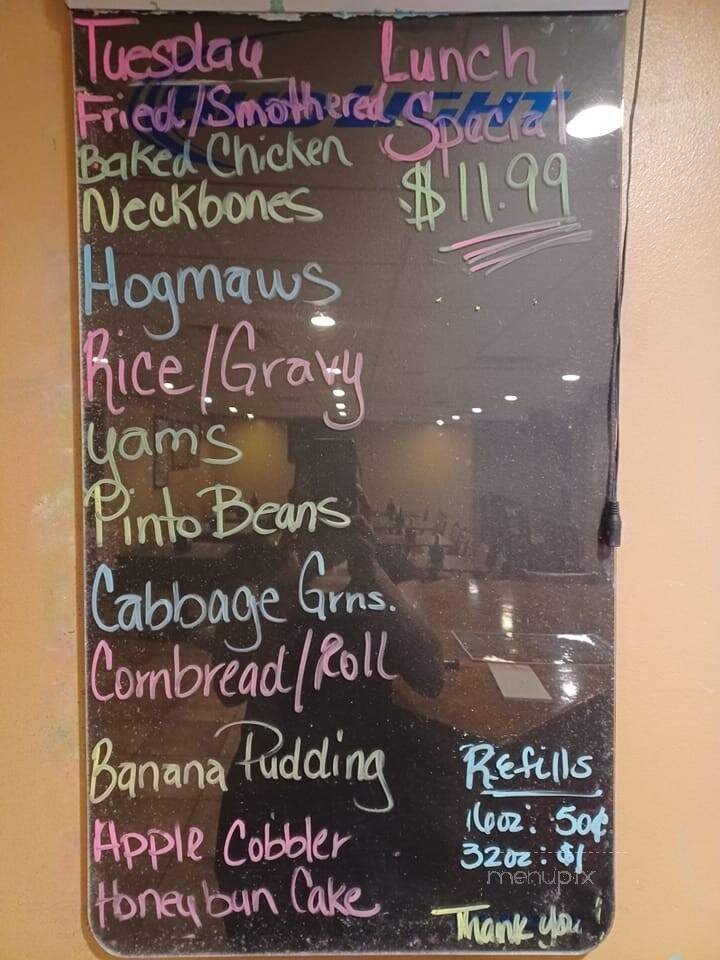 Tuesday
Lunch
Special
$11.99
Fried/Smothered
Baked Chicken
Neckbones
Hogmaws
Rice/Gravy
Yams
Pinto Beans
Cabbage Grns.
Cornbread/Roll
Banana Pudding
Apple Cobbler
Honeybun Cake
BUD LIGHT
Refills
16oz: 50¢
32oz: $1
menupix
Thank you!